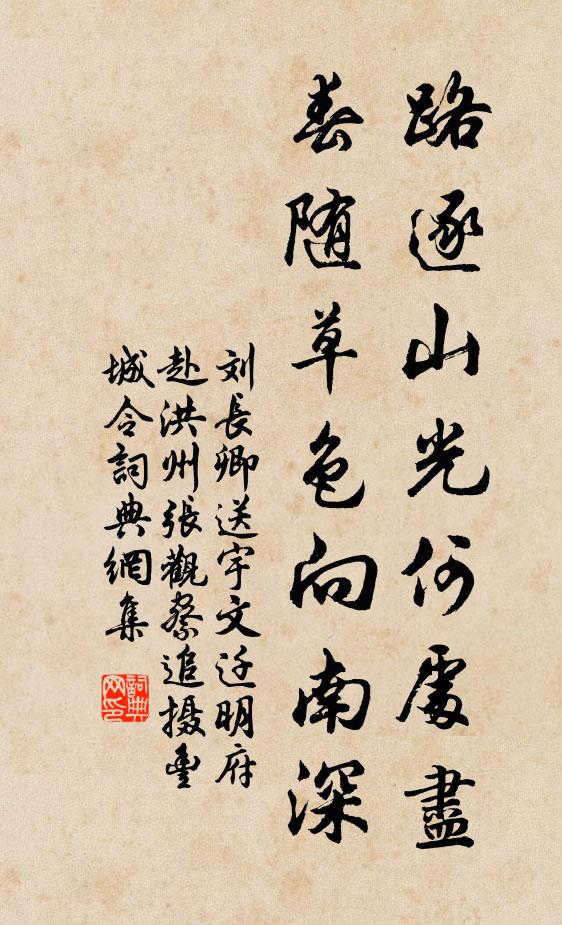 路逐山光何處盡
春随草色向南深
刘長卿送宇文迁明府
赴洪州張觀察追摄豐
城令詞典網集
詞典
网印